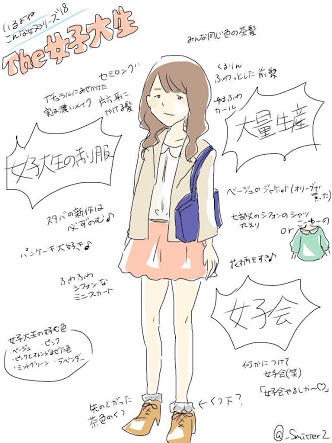 いるよね
こんな女シリーズ18
The女子大生
みんな同じ色の茶髪
セミロング
ナチュラルにみせかけた
実は濃いメイク
片方耳に
かける髪
くるりん
ふわっとした前髪
ゆるふわ
カール
大量生産
女子大生の制服
ベージュのジャケット(オリーブでも
七分丈のシフォンのシャツ
or
スタバの新作は
必ずのむ♪
パンケーキ大好き♪
花柄もすき♪
ふわふわ
シフォンな
ミニスカート
女子会
女子大生の好む色
・ベージュ ・ピンク
・ピンクとオレンジまぜた色
・ミントグリーン ・ラベンダー
何かにつけて
女子会(笑)
「女子会やるしか〜♡」
先のとがった
茶色のくつ
←くつ下?
@_Smitter2